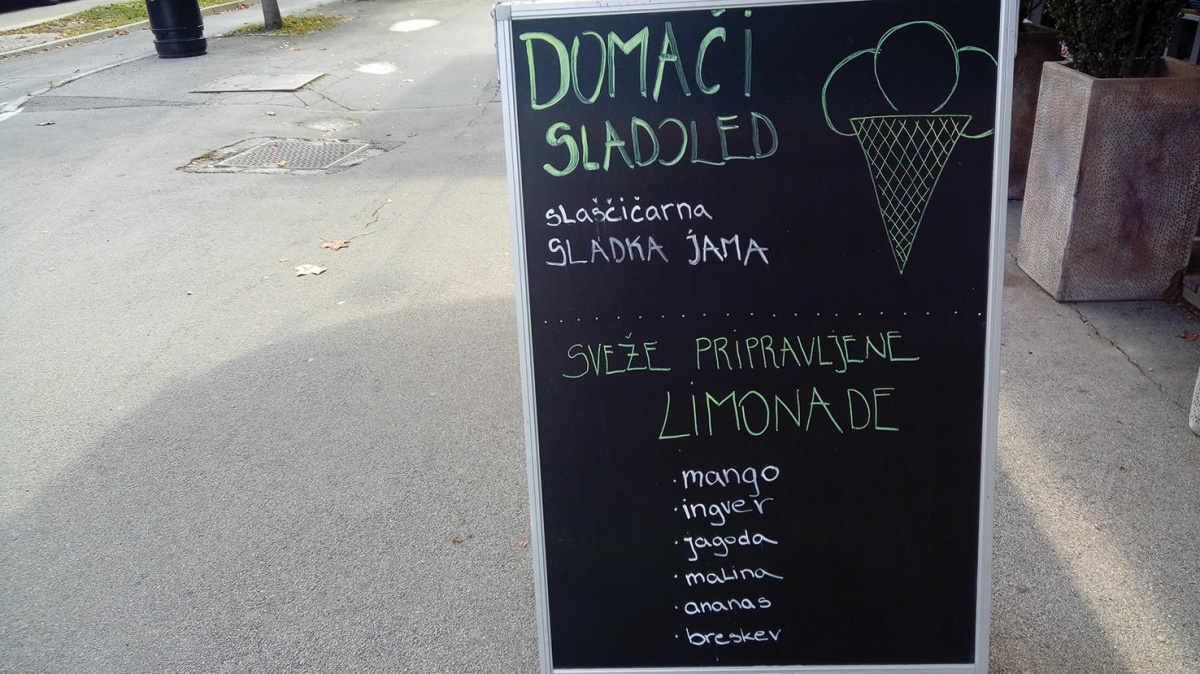 DOMAČI
SLADOLED
slaščičarna
SLADKA JAMA
SVEŽE PRIPRAVLJENE
LIMONADE
· mango
· ingver
· jagoda
· malina
· ananas
· breskev